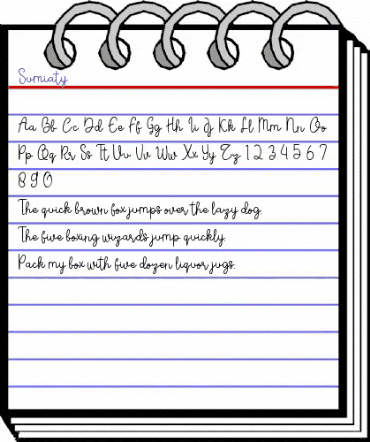 Sumiaty
Aa Bb Cc Dd Ee Ff Gg Hh Ii Jj Kk Ll Mm Nn Oo
Pp Qq Rr Ss Tt Uu Vv Ww Xx Yy Zz 1 2 3 4 5 6 7
8 9 0
The quick brown fox jumps over the lazy dog.
The five boxing wizards jump quickly.
Pack my box with five dozen liquor jugs.